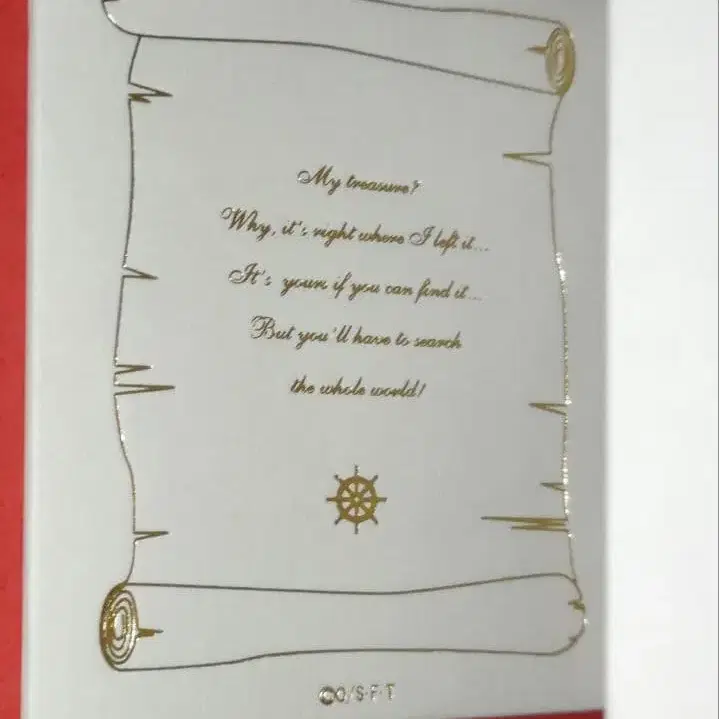 My treasure?
Why, it's right where I left it...
It's yours if you can find it...
But you'll have to search
the whole world!
©O/S·F·T